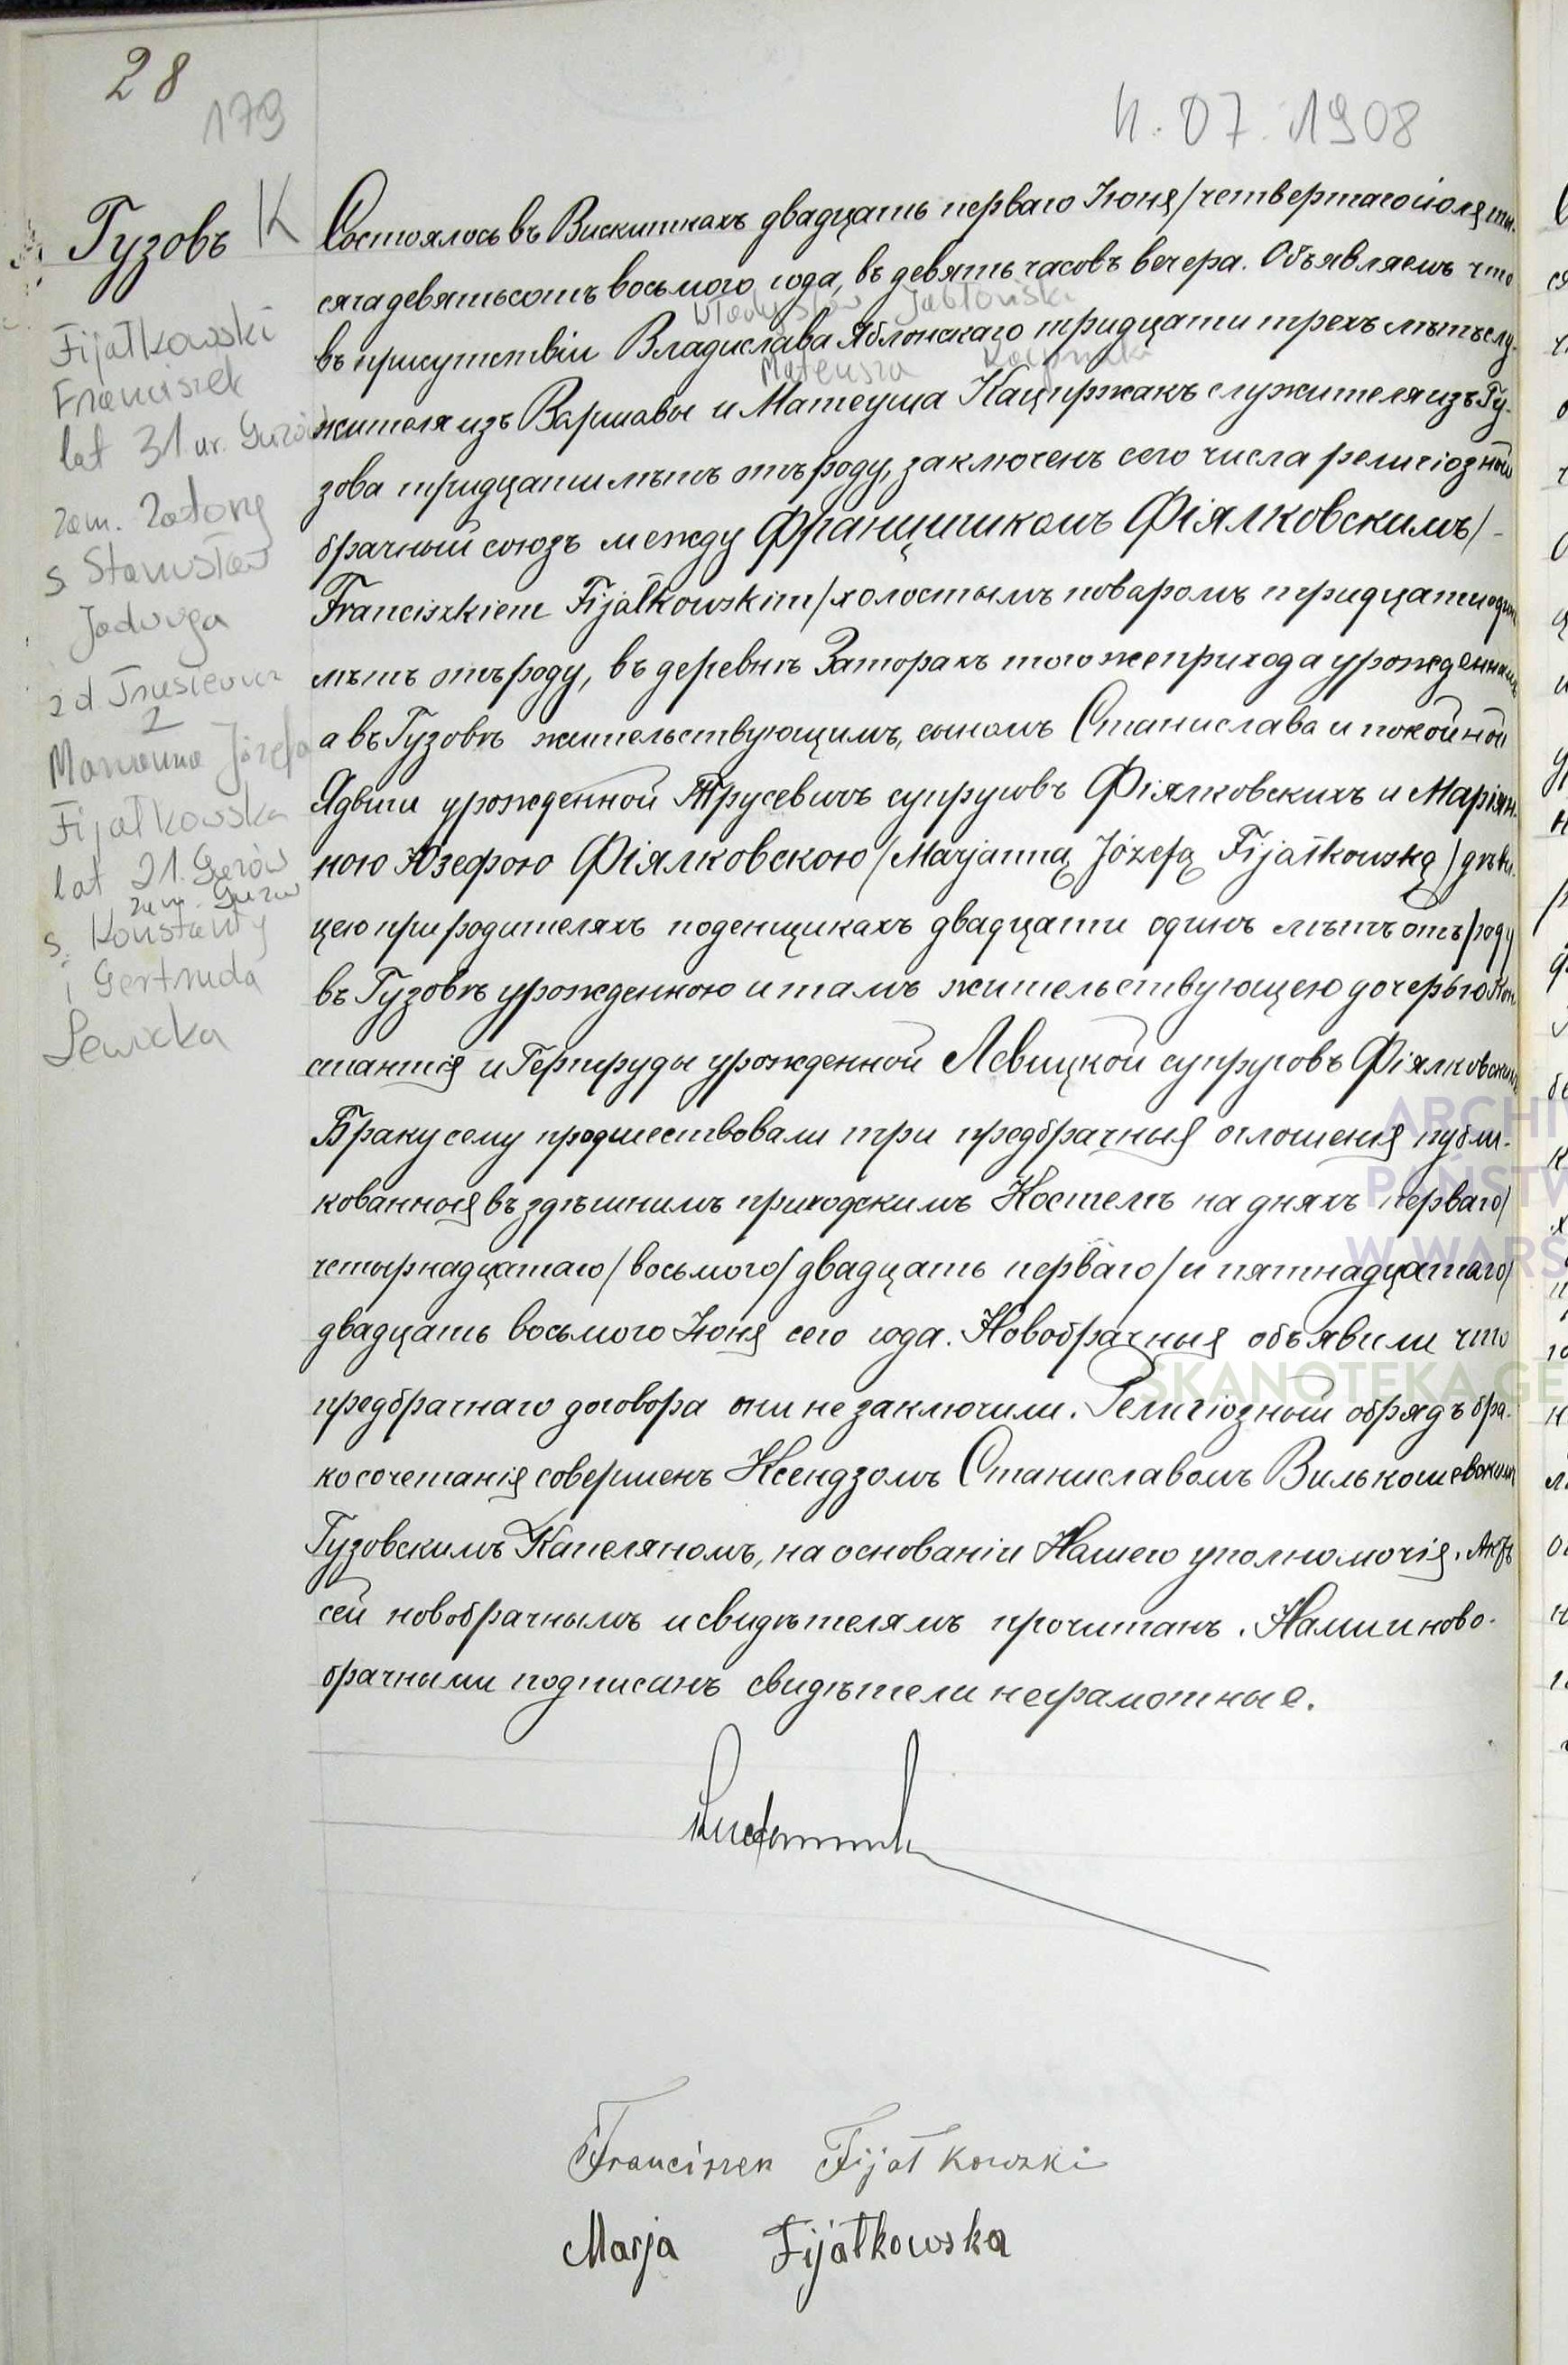 28
179
4.07.1908
Гузовъ
K
Fijałkowski
Franciszek
lat 31 ur. Guzów
zam. Zatory
s Stanisław
Jadwiga
z d Trusiewicz
2
Marianna Józefa
Fijałkowska
lat 21. Guzów
zam. Guzów
s. Konstanty
i Gertruda
Lewicka
Состоялось въ Вискиткахъ двадцать перваго Іюня/четвертаго іюля ты-
сяча девятьсотъ восьмого года, въ девять часовъ вечера. Объявляемъ что
Władysław Jabłoński
въ присутствіи Владислава Яблонскаго тридцати трехъ лѣтъ слу-
Mateusza
жителя изъ Варшавы и Матеуша Кацпржакъ служителя изъ Гу-
зова тридцати лѣтъ отъ роду, заключенъ сего числа религіозный
брачный союзъ между Францишкомъ Фіялковскимъ/-
Franciszkiem Fijałkowskim/холостымъ поваромъ тридцати одинъ
лѣтъ отъ роду, въ деревнѣ Заторахъ того же прихода урожденнымъ
а въ Гузовѣ жительствующимъ, сыномъ Станислава и покойной
Ядвиги урожденной Трусевичъ супруговъ Фіялковскихъ и Маріян-
ною Юзефою Фіялковскою/Marjanną Józefą Fijałkowską/дѣви-
цею при родителяхъ поденщикахъ двадцати одинъ лѣтъ отъ роду
въ Гузовѣ урожденною и тамъ жительствующею дочерью Кон
стантія и Гертруды урожденной Левицкой супруговъ Фіялковскихъ
Браку сему предшествовали три предбрачныя оглошенія публи-
кованныя въ здѣшнимъ приходскимъ Костелѣ на дняхъ перваго/
четырнадцатаго/восьмого/двадцать перваго/и пятнадцатаго/
двадцать восьмого Іюня сего года. Новобрачныя объявили что
предбрачнаго договора они не заключили. Религіозный обрядъ бра-
косочетанія совершенъ Ксендзомъ Станиславомъ Вилькошевскимъ
Гузовскимъ Капеляномъ, на основаніи Нашего уполномочія. Актъ
сей новобрачнымъ и свидѣтелямъ прочитанъ. Нами и ново-
брачными подписанъ свидѣтели неграмотные.
Franciszek Fijałkowski
Marja Fijałkowska
ARCHI
PAŃSTW
W WARS
SKANOTEKA GE